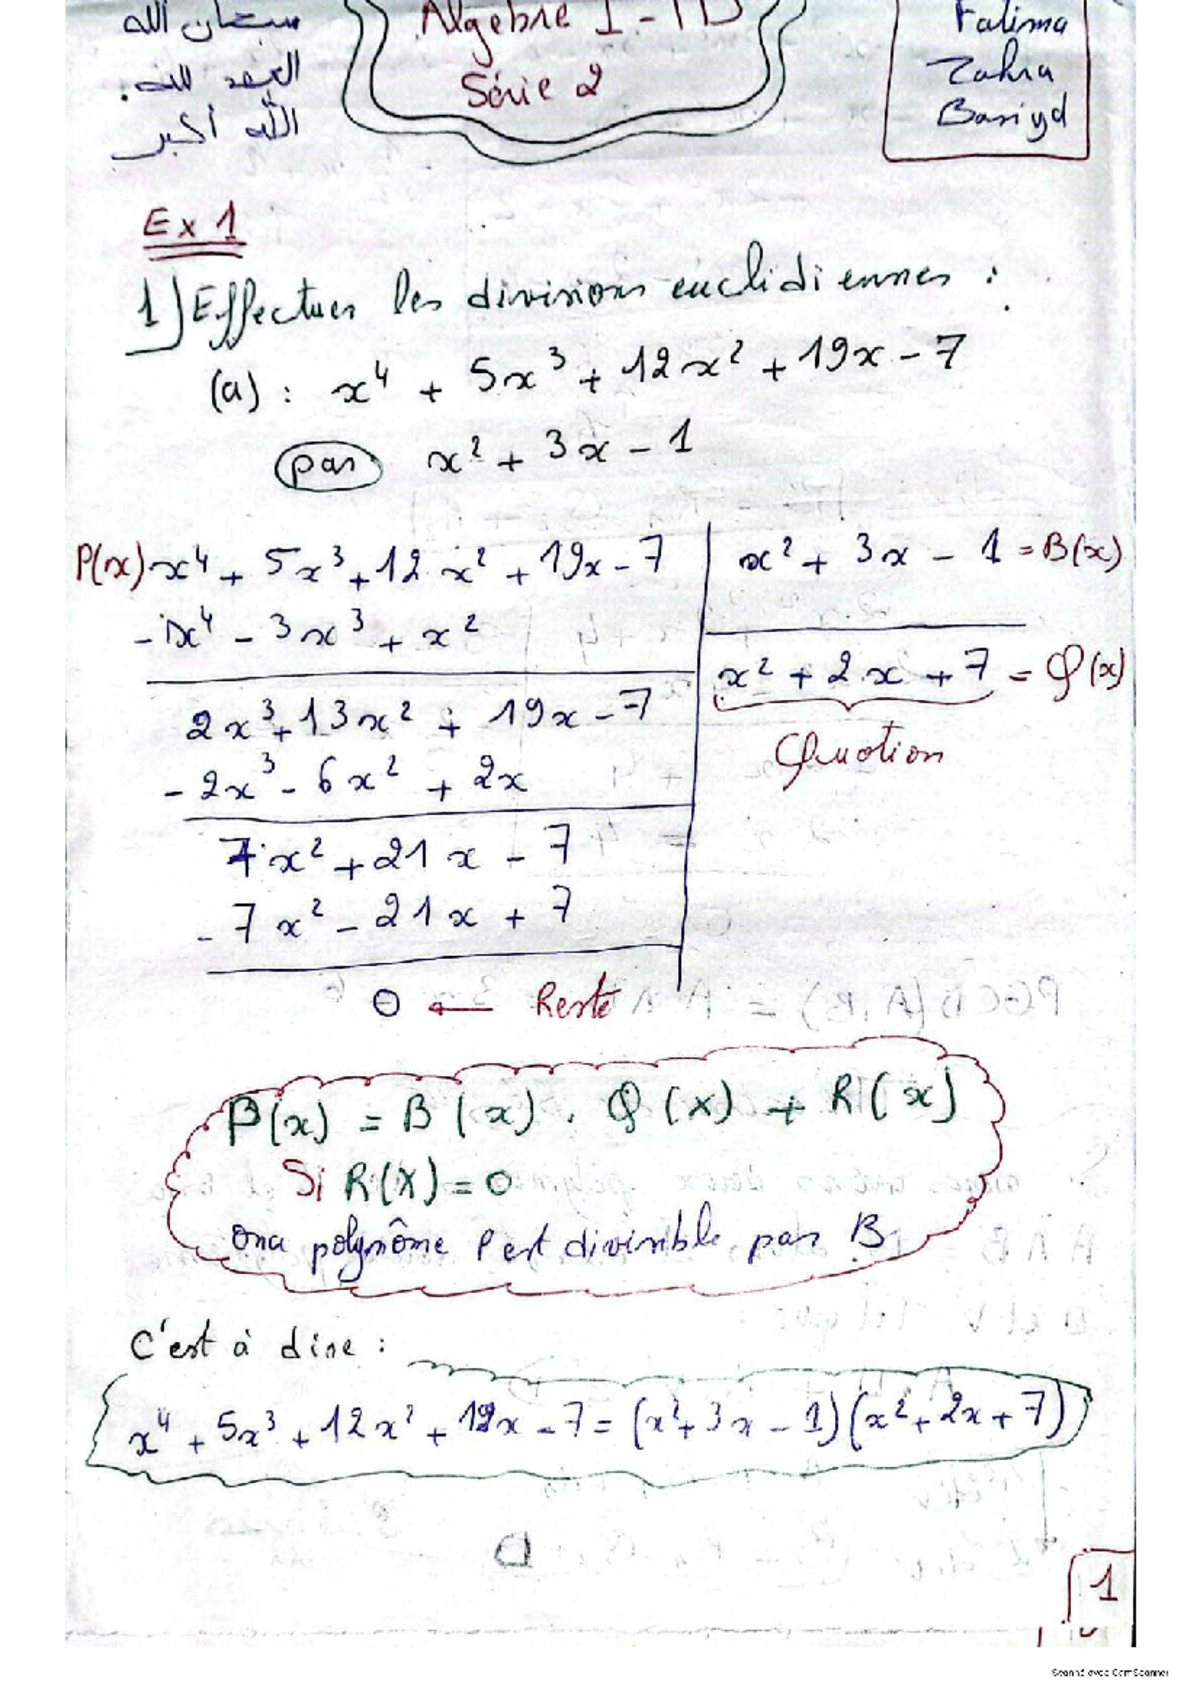 سبحان الله
الحمد لله.
الله أكبر
Algebre 1 - TD
Série 2
Fatima
Zahra
Basiyd
Ex 1
1) Effectuer les divisions euclidiennes :
(a) : x⁴ + 5x³ + 12x² + 19x - 7
par x² + 3x - 1
P(x) x⁴ + 5x³ + 12x² + 19x - 7
x² + 3x - 1 = B(x)
- x⁴ - 3x³ + x²
x² + 2x + 7 = Q(x)
Quotion
2x³ + 13x² + 19x - 7
- 2x³ - 6x² + 2x
7x² + 21x - 7
- 7x² - 21x + 7
0 ← Reste
P(x) = B(x) . Q(x) + R(x)
Si R(X) = 0
Ona polynôme P est divisible par B
C'est à dire :
x⁴ + 5x³ + 12x² + 19x - 7 = (x² + 3x - 1)(x² + 2x + 7)
1
Scanné avec CamScanner